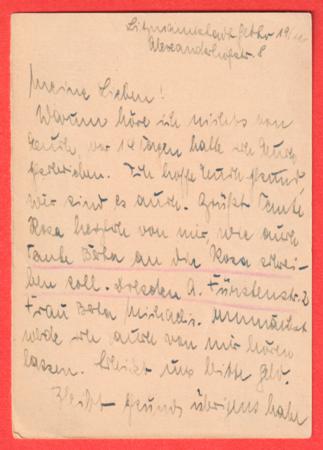 Litzmannstadt Getto 19
Alexanderhofstr. 8
Meine Lieben!
Warum höre ich nichts von
Euch, vor 14 Tagen hatte ich Euch
geschrieben. Ich hoffe Euch gesund,
wir sind es auch. Grüßt Tante
Rosa herzlich von mir, wie auch
Tante Berta, an die Rosa schrei-
ben soll. Dresden A. Fürstenstr. 2
Frau Berta Michaelis. Demnächst
werde ich auch von mir hören
lassen. Schickt uns bitte Geld.
Bleibt gesund, übrigens habe